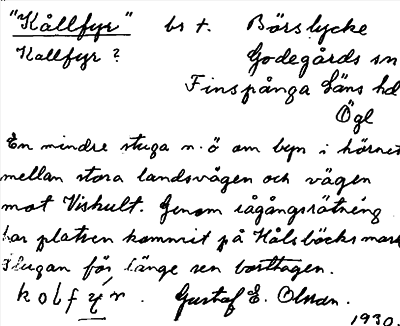 "Kållfyr" bs t. Börslycke
Kallfyr? Godegårds sn
Finspånga Läns hd
Ögl
En mindre stuga n.ö om byn i hörnet
mellan stora landsvägen och vägen
mot Viskult. Genom iågångsrätning
har platsen kommit på Hålsböcks mark
Stugan för länge sen borttagen.
kolfýr. Gustaf E. Olsson.
1930.